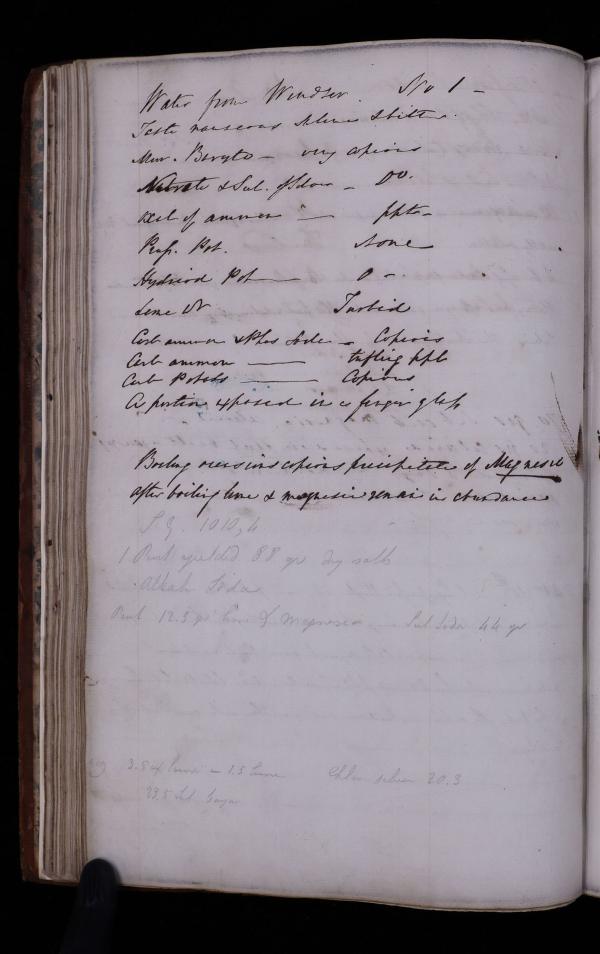 Water from Windsor. No 1 -
Taste nauseous saline & bitter.
Mur. Baryta - very copious
Nitrate & Sul. of Silver - Do.
Oxal of ammon - ppt -
Prus. Pot. None
Hydriod Pot - 0 - .
Lime Wr Turbid
Carb ammon & Phos Soda - Copious
Carb ammon - trifling ppt
Carb Potass - Copious
A portion exposed in a finger glass
Boiling occasions copious precipitate of Magnesia
after boiling lime & magnesia remain in abundance
S.G. 1010,4
1 Pint yielded 88 gr dry salts
Alkali Soda
Pint 12.5 gr lime & Magnesia - Sul Soda 44 gr
3.84 - 1.5 lime Chlor silver 20.3
23.5 Sul Baryta